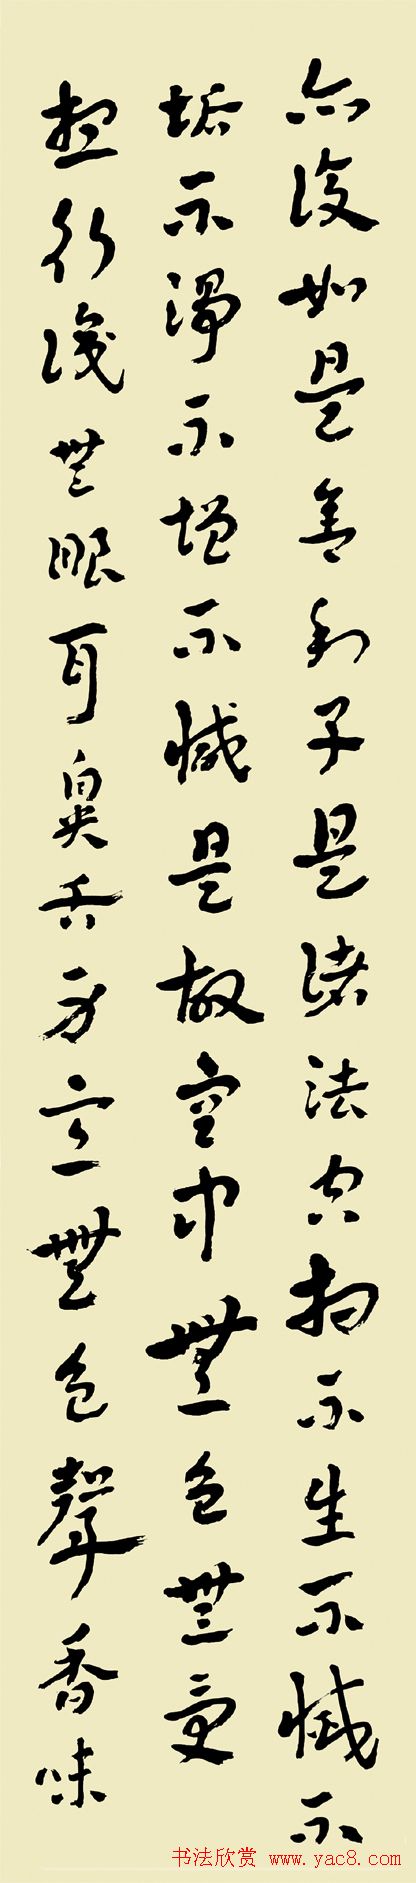 亦復如是舍利子是諸法空相不生不滅不
垢不淨不增不減是故空中無色無受
想行識無眼耳鼻舌身意無色聲香味
书法欣赏 www.yac8.com